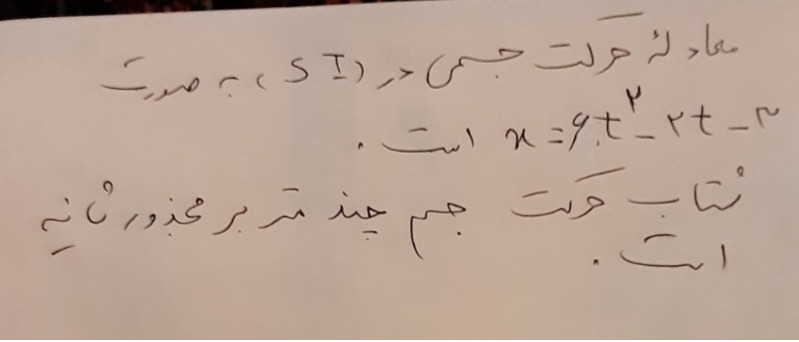 معادلهٔ حرکت جسمی در (SI) به صورت
x = ۶t^۲ - ۲t - ۳ است.
شتاب حرکت جسم چند متر بر مجذور ثانیه
است.